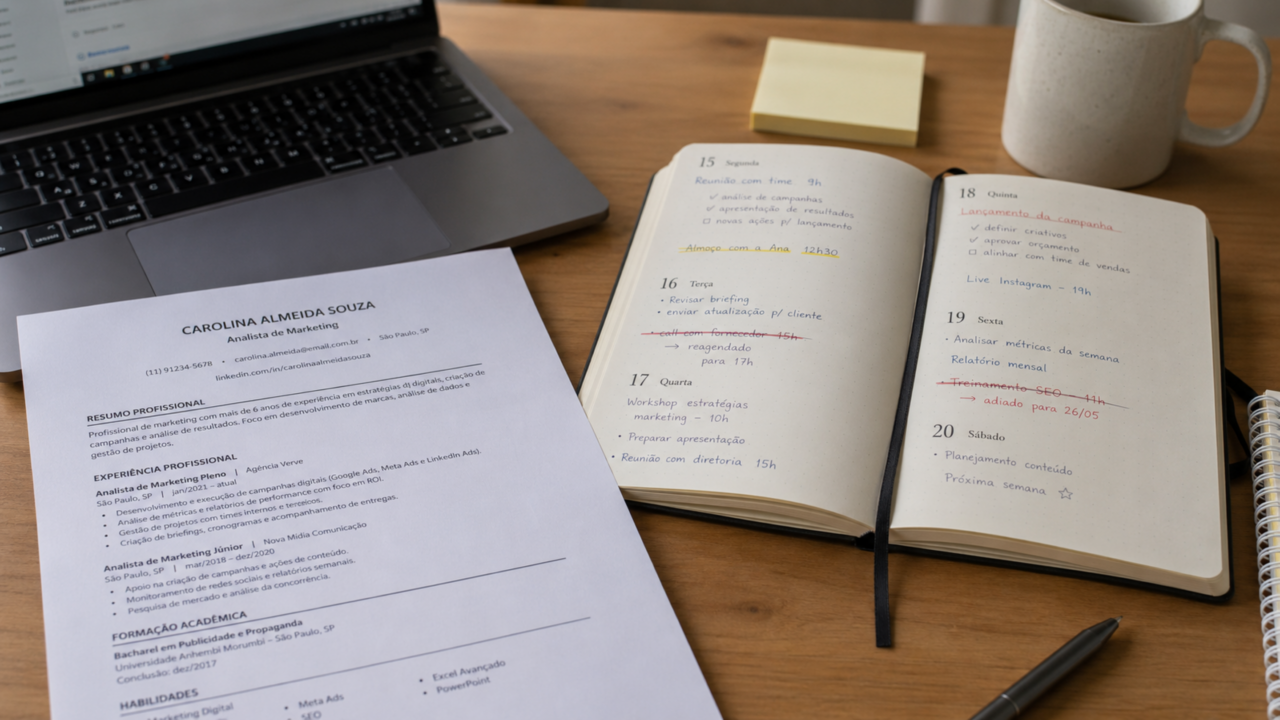 CAROLINA ALMEIDA SOUZA
Analista de Marketing
(11) 91234-5678 • carolina.almeida@email.com.br • São Paulo, SP
linkedin.com/in/carolinaalmeidasouza
RESUMO PROFISSIONAL
Profissional de marketing com mais de 6 anos de experiência em estratégias dj digitais, criação de
campanhas e análise de resultados. Foco em desenvolvimento de marcas, análise de dados e
gestão de projetos.
EXPERIÊNCIA PROFISSIONAL
Analista de Marketing Pleno | Agência Verve
São Paulo, SP | jan/2021 – atual
• Desenvolvimento e execução de campanhas digitais (Google Ads, Meta Ads e LinkedIn Ads).
• Análise de métricas e relatórios de performance com foco em ROI.
• Gestão de projetos com times internos e
• Criação de briefings, cronogramas e acompanhamento de entregas.
Analista de Marketing Júnior | Nova Mídia Comunicação
São Paulo, SP | mar/2018 – dez/2020
• Apoio na criação de campanhas e ações de conteúdo.
• Monitoramento de redes sociais e relatórios semanais.
• Pesquisa de mercado e análise da concorrência.
FORMAÇÃO ACADÊMICA
Bacharel em Publicidade e Propaganda
Universidade Anhembi Morumbi – São Paulo, SP
Conclusão: dez/2017
HABILIDADES
Marketing Digital
• Meta Ads
• SEO
• Excel Avançado
• PowerPoint
15 Segunda
Reunião com time 9h
✓ análise de campanhas
✓ apresentação de resultados
☐ novas ações p/ lançamento
Almoço com a Ana 12h30
16 Terça
• Revisar briefing
• enviar atualização p/ cliente
• call com fornecedor 15h
→ reagendado
para 17h
17 Quarta
Workshop estratégias
marketing – 10h
• Preparar apresentação
• Reunião com diretoria 15h
18 Quinta
Lançamento da campanha
✓ definir criativos
✓ aprovar orçamento
☐ alinhar com time de vendas
Live Instagram – 19h
19 Sexta
• Analisar métricas da semana
Relatório mensal
• Treinamento SEO – 11h
→ adiado para 26/05
20 Sábado
• Planejamento conteúdo
Próxima semana ☆